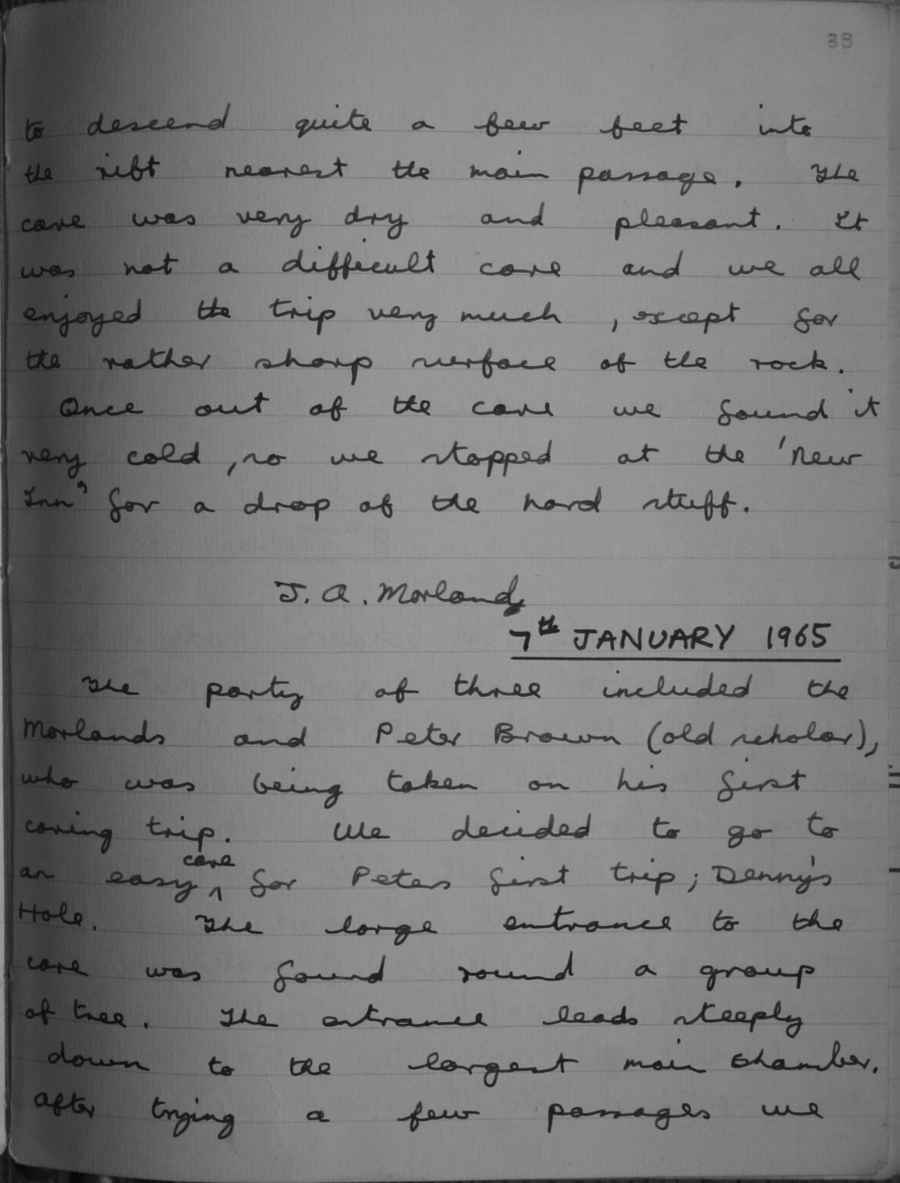 38
to descend quite a few feet into
the rift nearest the main passage. The
cave was very dry and pleasant. It
was not a difficult cave and we all
enjoyed the trip very much, except for
the rather sharp surface of the rock.
Once out of the cave we found it
very cold, so we stopped at the 'New
Inn' for a drop of the hard stuff.
J. A. Morland
7th JANUARY 1965
The party of three included the
Morlands and Peter Brown (old scholar),
who was being taken on his first
caving trip. We decided to go to
an easy cave for Peters first trip; Denny's
Hole. The large entrance to the
cave was found round a group
of tree. The entrance leads steeply
down to the largest main chamber.
After trying a few passages we